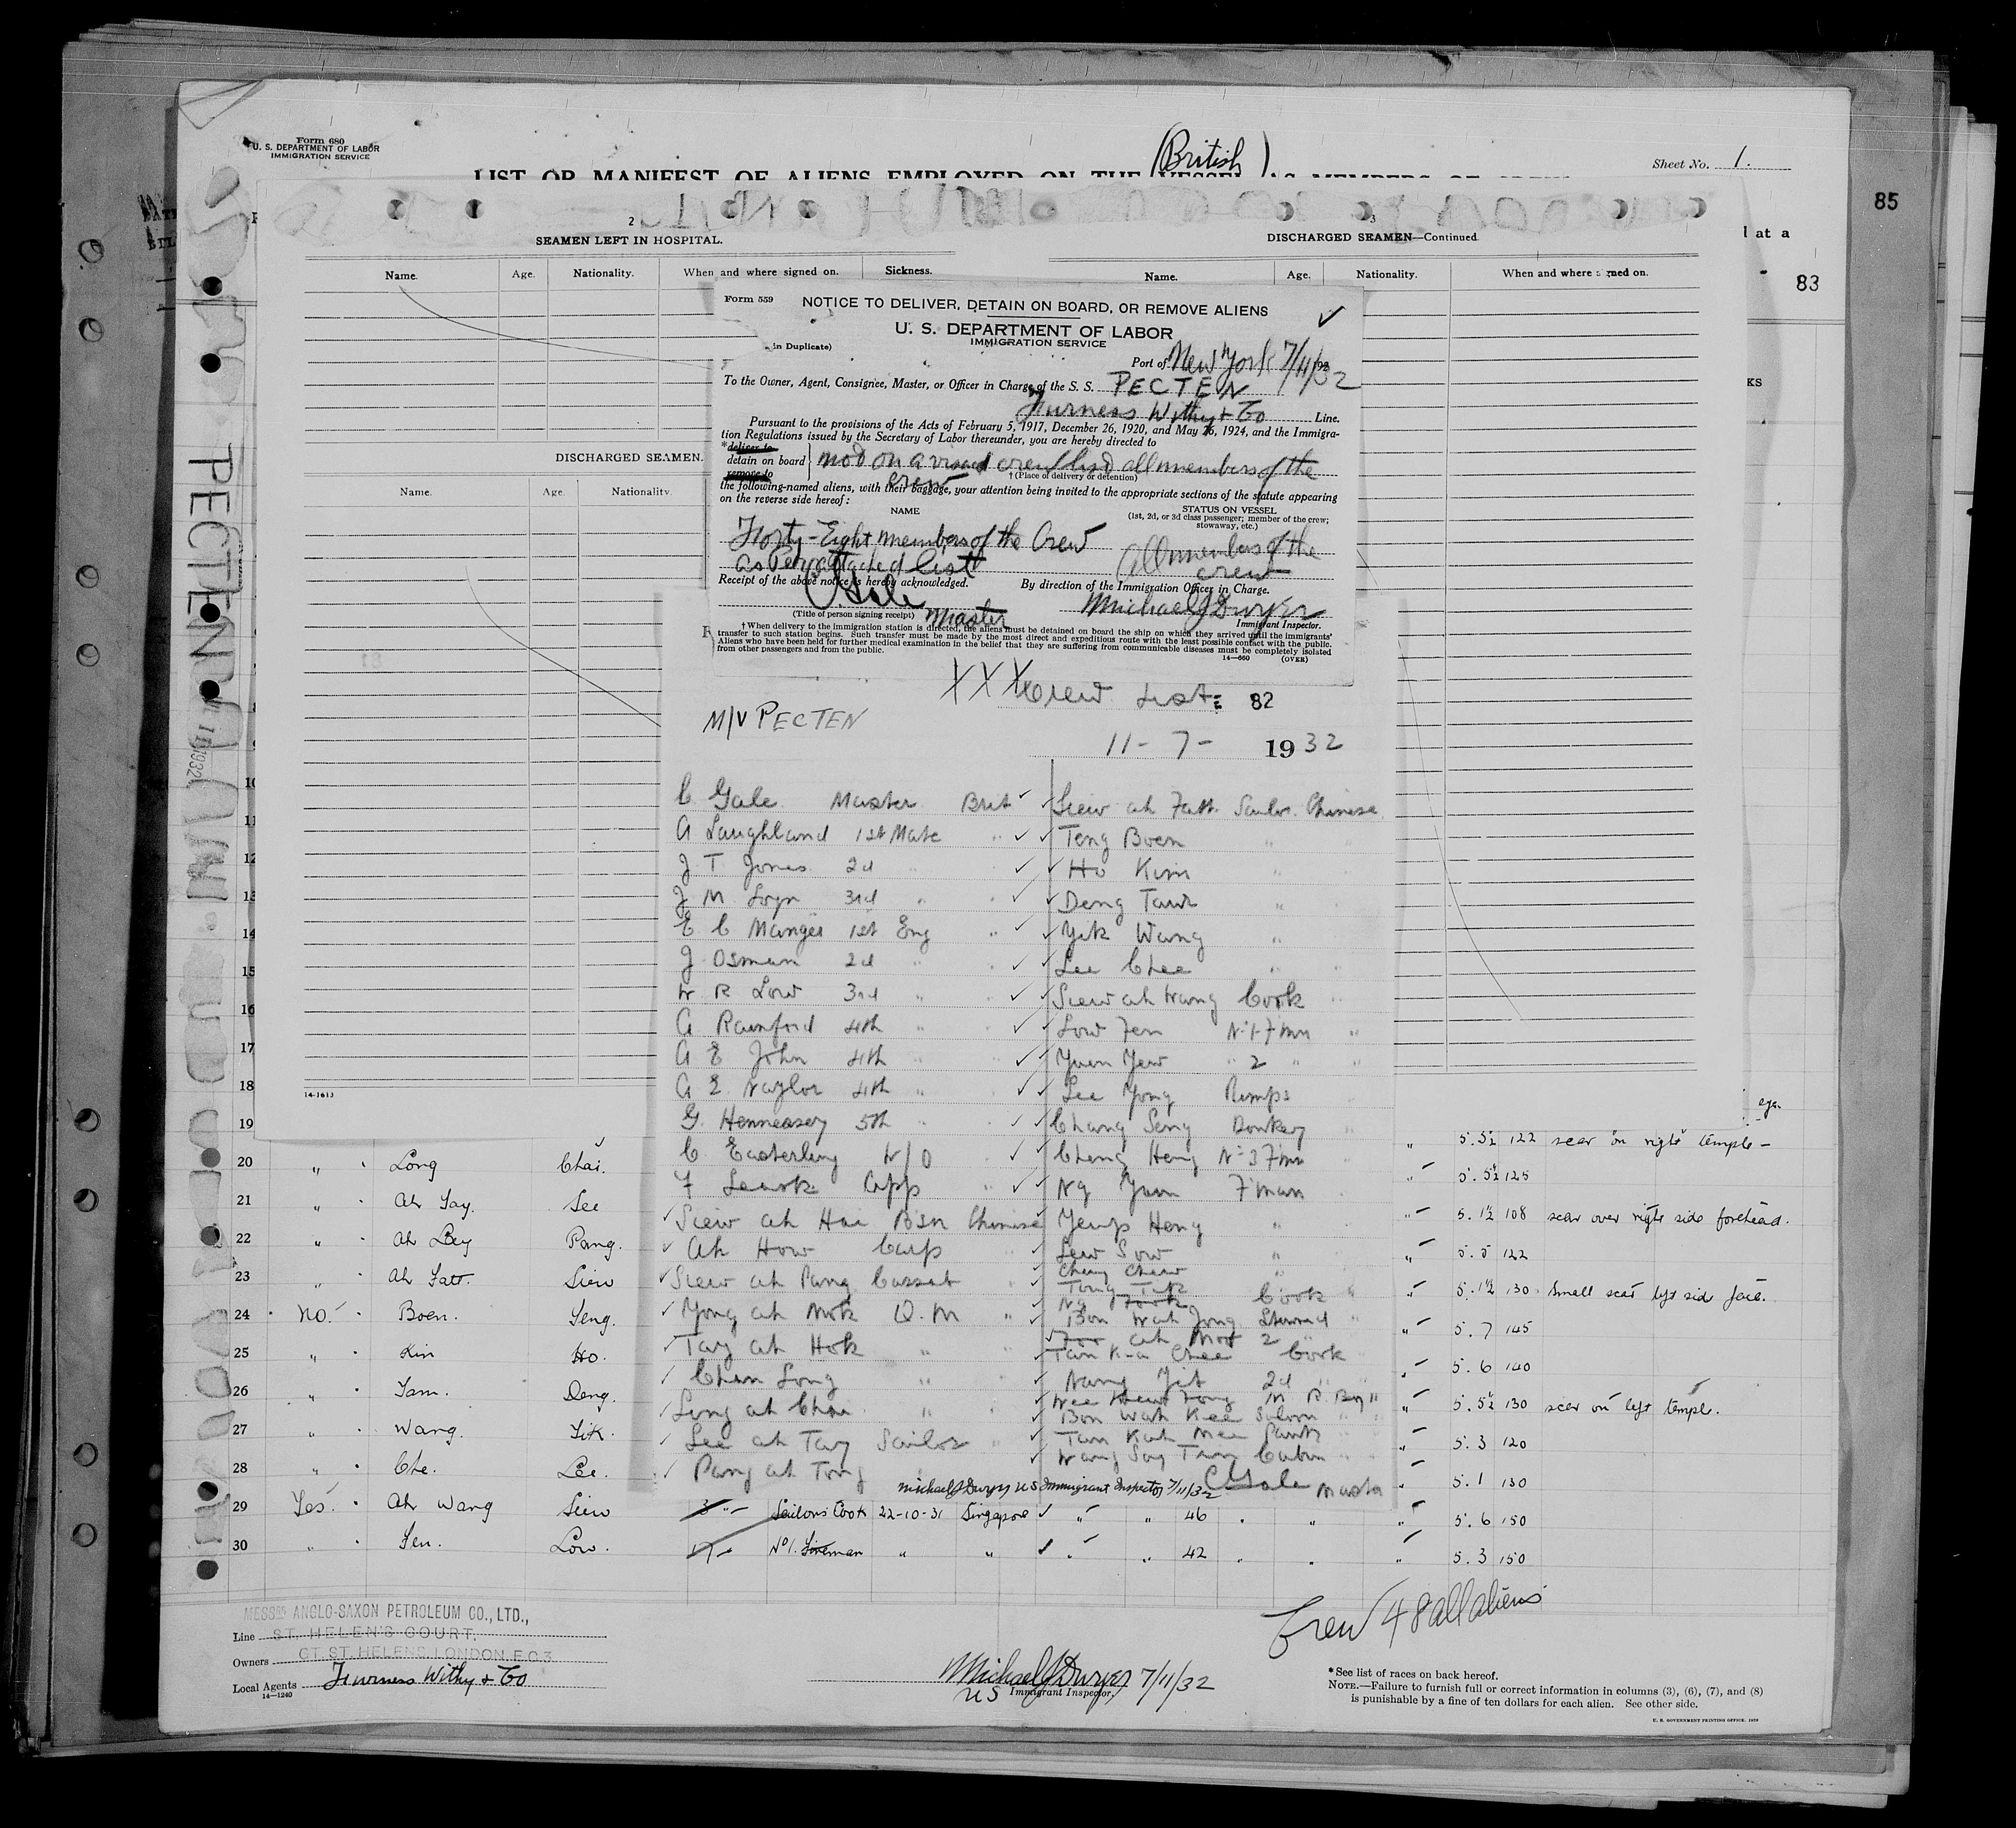 Form 680
U. S. DEPARTMENT OF LABOR
IMMIGRATION SERVICE
(British)
Sheet No. 1.
LIST OR MANIFEST OF ALIENS EMPLOYED ON THE VESSEL AS MEMBERS OF CREW
85
l at a
83
KS
2
SEAMEN LEFT IN HOSPITAL.
Name. Age. Nationality. When and where signed on. Sickness.
DISCHARGED SEAMEN.
Name. Age. Nationality.
3
DISCHARGED SEAMEN—Continued.
Name. Age. Nationality. When and where signed on.
14-1613
PECTEN
Form 559
NOTICE TO DELIVER, DETAIN ON BOARD, OR REMOVE ALIENS
U. S. DEPARTMENT OF LABOR
IMMIGRATION SERVICE
in Duplicate)
Port of New York 7/11/32
To the Owner, Agent, Consignee, Master, or Officer in Charge of the S. S. PECTEN
Furness Withy & Co Line.
Pursuant to the provisions of the Acts of February 5, 1917, December 26, 1920, and May 26, 1924, and the Immigra-
tion Regulations issued by the Secretary of Labor thereunder, you are hereby directed to
*deliver to
detain on board not on a visaed crew list all members of the
remove to crew
† (Place of delivery or detention)
the following-named aliens, with their baggage, your attention being invited to the appropriate sections of the statute appearing
on the reverse side hereof:
NAME
STATUS ON VESSEL
(1st, 2d, or 3d class passenger; member of the crew;
stowaway, etc.)
Forty-Eight members of the Crew
as Per attached list
All members of the
crew
Receipt of the above notice is hereby acknowledged. By direction of the Immigration Officer in Charge.
C Gale Master
Michael J Dwyer
(Title of person signing receipt) Immigrant Inspector.
† When delivery to the immigration station is directed, the aliens must be detained on board the ship on which they arrived until the immigrants'
transfer to such station begins. Such transfer must be made by the most direct and expeditious route with the least possible contact with the public.
Aliens who have been held for further medical examination in the belief that they are suffering from communicable diseases must be completely isolated
from other passengers and from the public.
14—660 (OVER)
XXX Crew List: 82
M/V PECTEN
11 - 7 - 1932
C Gale Master Brit
A Laughland 1st Mate "
J T Jones 2d " "
J M Logn 3rd " "
E C Manger 1st Eng "
J Osman 2d " "
W R Low 3rd " "
A Rainford 4th " "
A E John 4th " "
A E Naylor 4th " "
G Hennessey 5th " "
C Easterling W/O "
F Leask App "
Siew ah Hai B'sn Chinese
Ah How Carp
Siew ah Pang Cassab "
Yong ah Mok Q.M "
Tay ah Hok " "
Chan Long " "
Long ah Chai " "
Lee ah Tay Sailor "
Pang ah Tong
Siew ah Fatt Sailor Chinese
Teng Boen "
Ho Kim "
Deng Tam "
Yik Wang "
Lee Chee " "
Siew ah Wang Cook "
Low Fen No 1 F'mn "
Yuen Yew " 2 " "
Lee Yong Pumps
Chang Seng Donkey "
Cheng Heng No 3 F'mn
Ng Yuen F'man
Yeup Heng "
Lew Sow "
Cheng Chew
Tong Tik
Ng Cook "
Bon Wah Jong Steward "
ah Moy 2 "
Tan K-a Chee Cook
Nang Jit 2d "
Wee Fong M R Boy "
Bon Wah Kee Saloon " "
Tan Kah Mee Pantry
Wang Soy Tran Cabin "
Michael J Dwyer US Immigrant Inspector 7/11/32 C Gale Master
10
11
12
13
14
15
16
17
18
19 " 5.5½ 122 scar on right temple -
20 " " Long Chai. " 5.5½ 125
21 " " Ah Tay. Lee " 5.1½ 108 scar over right side forehead.
22 " " Ah Pang. " 5.5 122
23 " " Ah Fatt. Siew " 5.1½ 130 Small scar left side face.
24 " No. " Boen. Teng. " 5.7 145
25 " " Kim Ho. " 5.6 140
26 " " Tam. Deng. " 5.5½ 130 scar on left temple.
27 " " Wang. Yik. " 5.3 120
28 " " Che. Lee. " 5.1 130
29 Yes. " Ah Wang Siew 3 " Sailors Cook 22-10-31 Singapore " " 46 " " " 5.6 150
30 " " Fen. Low. No 1. Fireman " " " " 42 " " " 5.3 150
Crew 48 all aliens
MESSRS ANGLO-SAXON PETROLEUM CO., LTD.,
Line ST. HELEN'S COURT,
Owners GT. ST. HELENS, LONDON, E.C.3
Local Agents Furness Withy & Co
14—1240
Michael J Dwyer 7/11/32
US Immigrant Inspector.
*See list of races on back hereof.
NOTE.—Failure to furnish full or correct information in columns (3), (6), (7), and (8)
is punishable by a fine of ten dollars for each alien. See other side.
U. S. GOVERNMENT PRINTING OFFICE. 1929